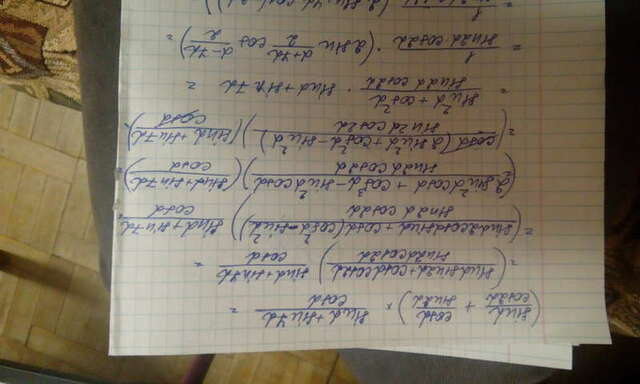 (sinα/cos2α + cosα/sin2α) × (sinα + sin7α)/cosα =
= ((sinα sin2α + cosα cos2α)/(sin2α cos2α)) (sinα + sin7α)/cosα =
= ((sinα 2cosα sinα + cosα (cos²α - sin²α))/(sin2α cos2α)) (sinα + sin7α)/cosα
((2sin²α cosα + cos³α - sin²α cosα)/(sin2α cos2α)) ((sinα + sin7α)/cosα) =
= (cosα (2sin²α + cos²α - sin²α)/(sin2α cos2α)) ((sinα + sin7α)/cosα)
= (sin²α + cos²α)/(sin2α cos2α) · sinα + sin7α =
= 1/(sin2α cos2α) · (2 sin (α+7α)/2 cos (α-7α)/2) =